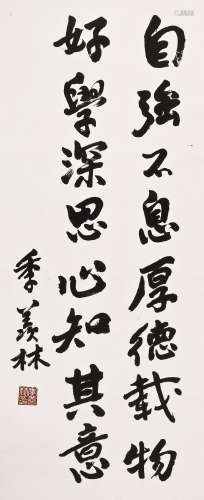 自強不息厚德載物
好學深思心知其意
季羨林